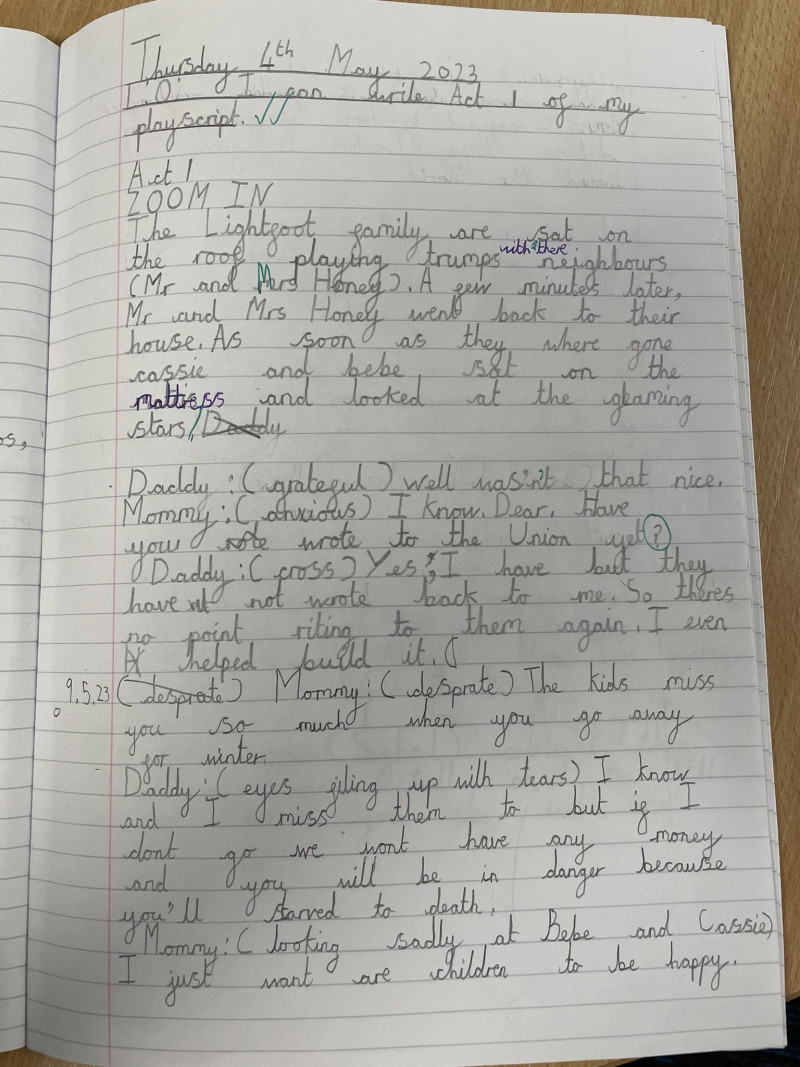 Thursday 4th May 2023
L.O: I can write Act 1 of my
playscript.
Act 1
ZOOM IN
The Lightfoot family are sat on
the roof playing trumps with there neighbours
(Mr and Mrs Honey). A few minutes later,
Mr and Mrs Honey went back to their
house. As soon as they where gone
cassie and bebe sat on the
mattress and looked at the gleaming
stars. Daddy
Daddy: (grateful) Well was'n't that nice.
Mommy: (anxious) I know. Dear. Have
you wrote to the Union yet?
Daddy: (cross) Yes, I have but they
have not wrote back to me. So theres
no point riting to them again. I even
helped build it. (
9.5.23 (desprate) Mommy: (desprate) The kids miss
you so much when you go away
for winter.
Daddy: (eyes filing up with tears) I know
and I miss them to but if I
dont go we wont have any money
and you will be in danger because
you'll starved to death.
Mommy: (looking sadly at Bebe and Cassie)
I just want are children to be happy.